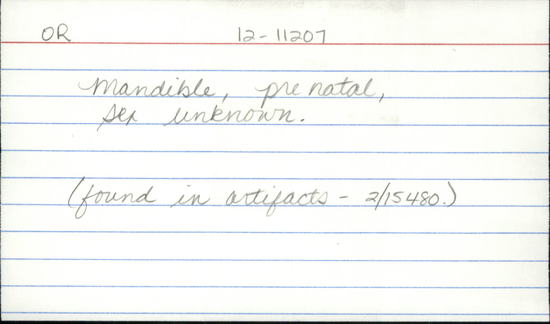 OR 12-11207
Mandible, prenatal,
sex unknown.
(found in artifacts - 2/15480.)